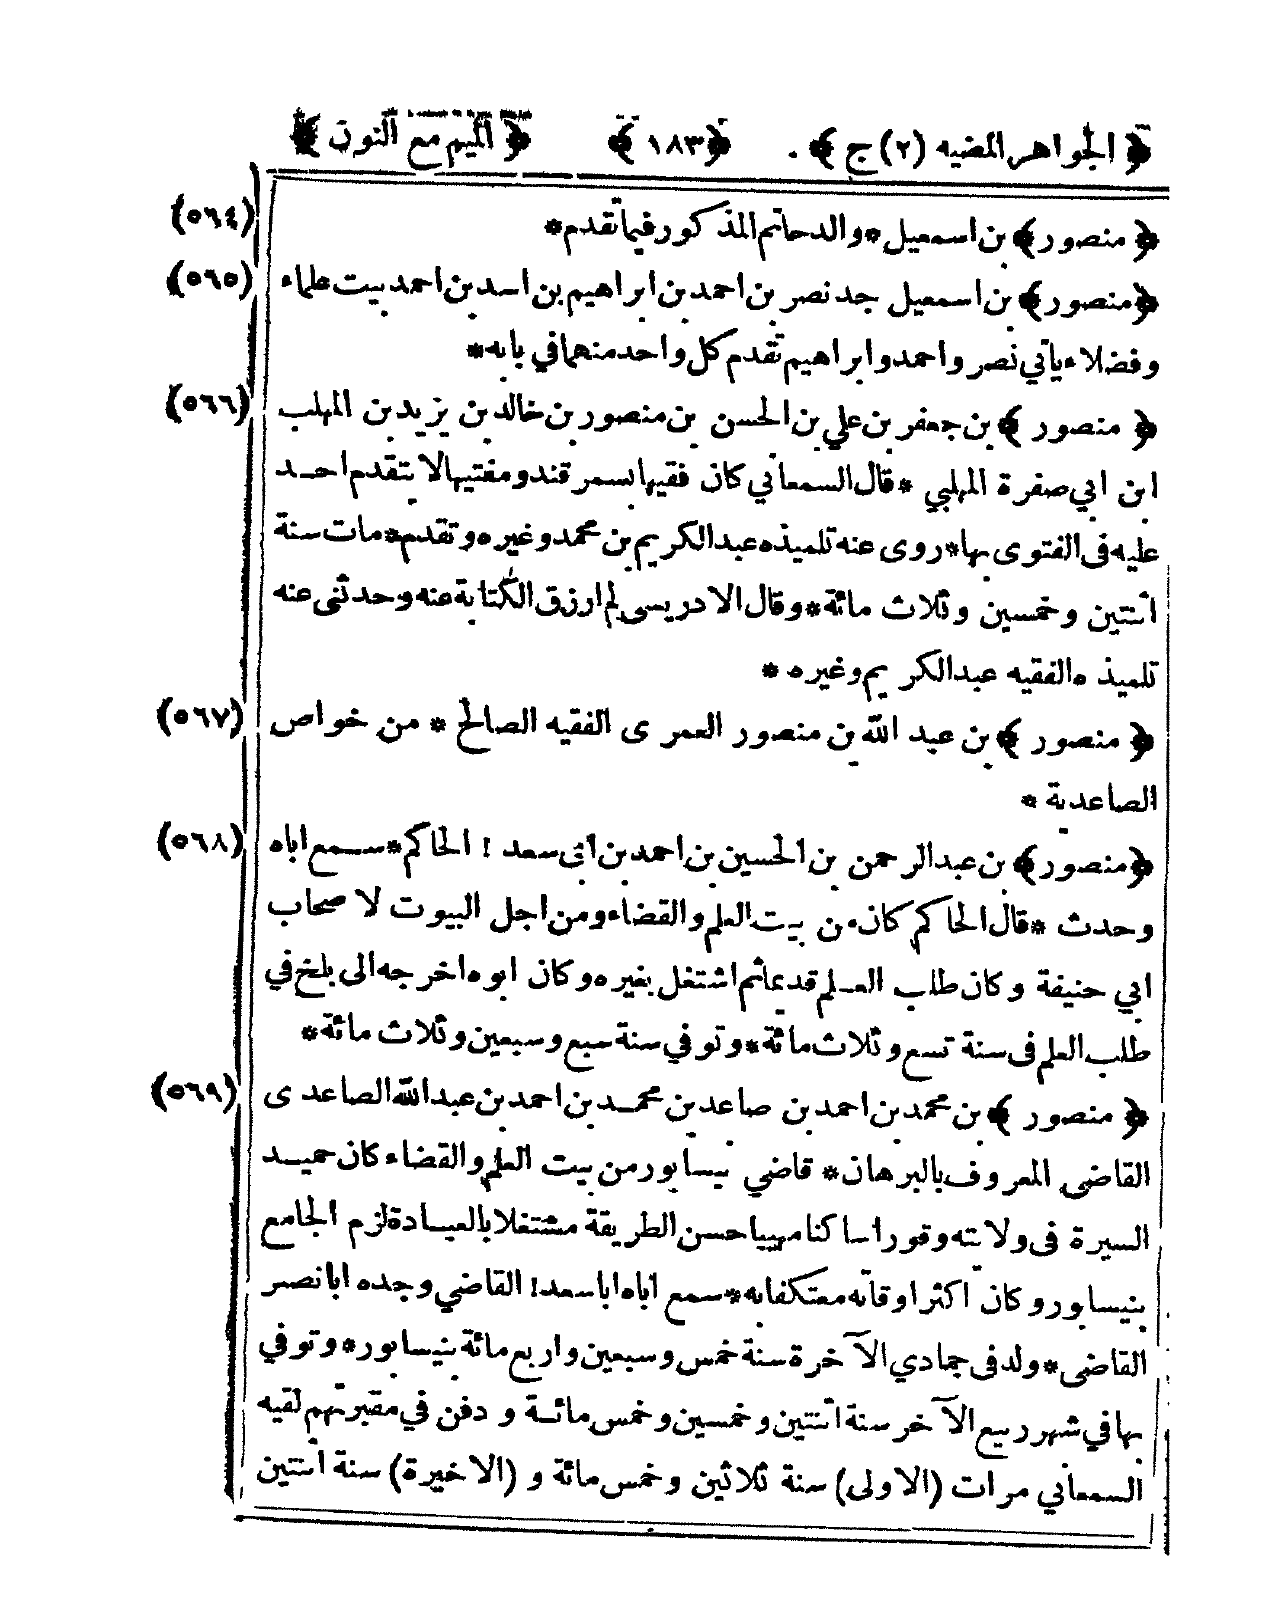 ﴿ الجواهر المضيه (٢) ج ﴾ ﴿ ١٨٣ ﴾ ﴿ الميم مع النون ﴾
﴿ منصور ﴾ بن اسمعيل * والد حاتم المذكور فيما تقدم * (٥٦٤)
﴿ منصور ﴾ بن اسمعيل جد نصر بن احمد بن ابراهيم بن اسد بن احمد بيت علماء (٥٦٥)
وفضلاء يأتي نصر واحمد وابراهيم تقدم كل واحد منهما في بابه *
﴿ منصور ﴾ بن جعفر بن علي بن الحسن بن منصور بن خالد بن يزيد بن المهلب (٥٦٦)
ابن ابي صفرة المهلبي * قال السمعاني كان فقيها بسمرقند ومفتيها لا يتقدم احد
عليه في الفتوى بها * روى عنه تلميذه عبد الكريم بن محمد وغيره وتقدم * مات سنة
اثنتين وخمسين وثلاث مائة * وقال الادريسى لم ارزق الكتابة عنه وحدثنى عنه
تلميذه الفقيه عبد الكريم وغيره *
﴿ منصور ﴾ بن عبد الله بن منصور العمرى الفقيه الصالح * من خواص (٥٦٧)
الصاعدية *
﴿ منصور ﴾ بن عبد الرحمن بن الحسين بن احمد بن ابى سعد ! الحاكم * سمع اباه (٥٦٨)
وحدث * قال الحاكم كان من بيت العلم والقضاء ومن اجل البيوت لا صحاب
ابي حنيفة وكان طلب العلم قديما ثم اشتغل بغيره وكان ابوه اخرجه الى بلخ في
طلب العلم فى سنة تسع وثلاث مائة * وتوفي سنة سبع وسبعين وثلاث مائة *
﴿ منصور ﴾ بن محمد بن احمد بن صاعد بن محمد بن احمد بن عبد الله الصاعدى (٥٦٩)
القاضى المعروف بالبرهان * قاضي نيسابور من بيت العلم والقضاء كان حميد
السيرة فى ولايته وقورا ساكنا مهيبا حسن الطريقة مشتغلا بالعبادة لزم الجامع
بنيسابور وكان اكثر اوقاته معتكفا به * سمع اباه اباسعد ! القاضي وجده ابانصر
القاضى * ولد فى جمادي الآخرة سنة خمس وسبعين واربع مائة بنيسابور * وتوفي
بها في شهر ربيع الآخر سنة اثنتين وخمسين وخمس مائة و دفن في مقبرتهم لقيه
السمعاني مرات (الاولى) سنة ثلاثين وخمس مائة و (الاخيرة) سنة اثنتين